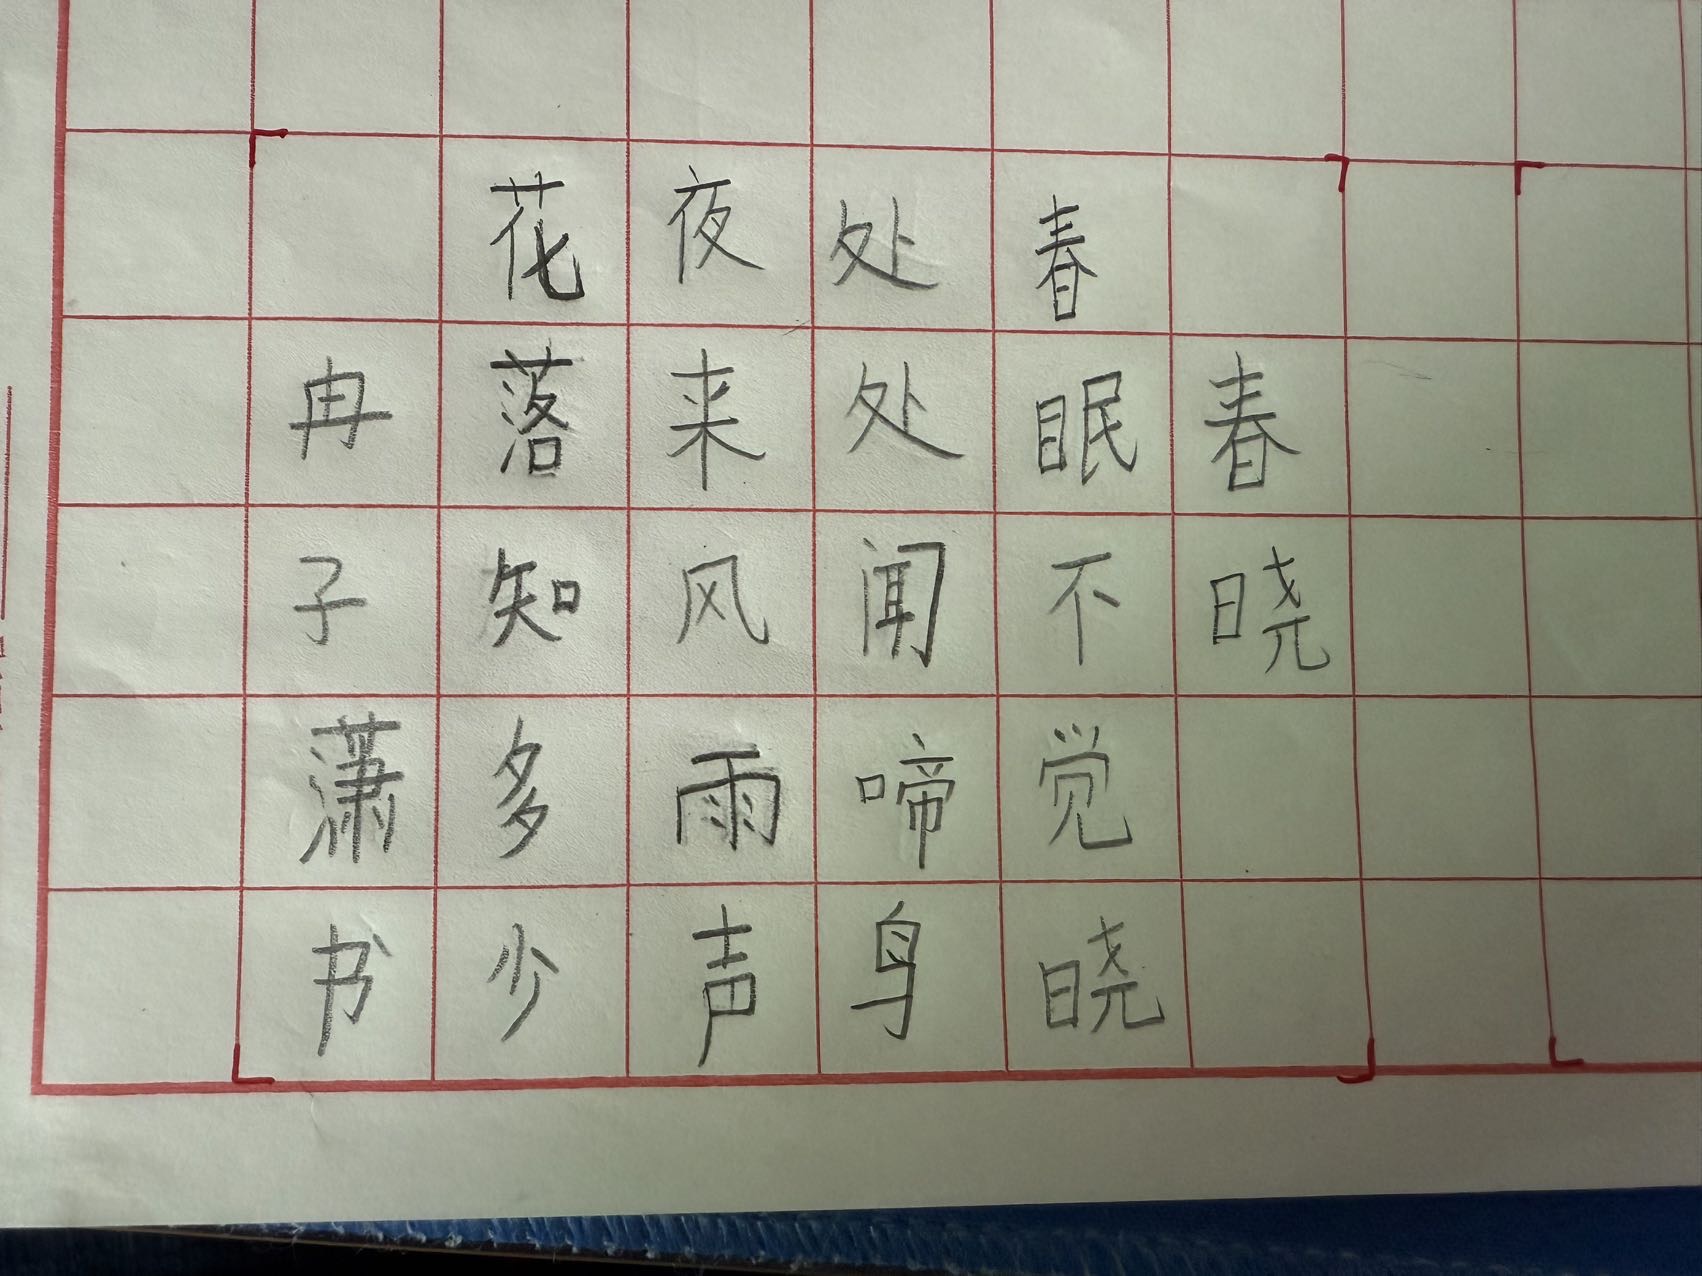 春晓
春眠不觉晓
处处闻啼鸟
夜来风雨声
花落知多少
冉子潇书